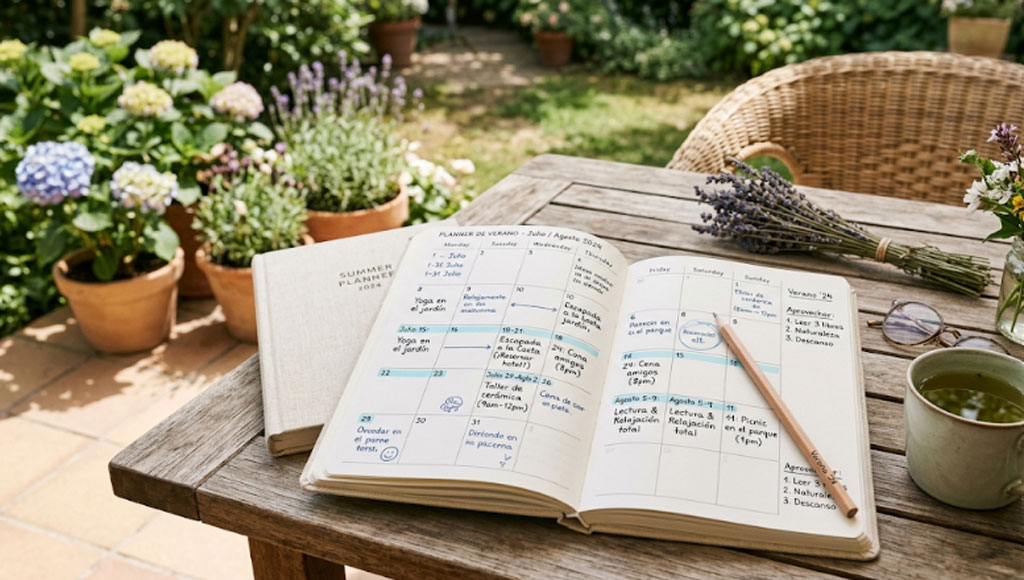 SUMMER
PLANNER
2024
PLANNER DE VERANO - Julio / Agosto 2024
Monday Tuesday Wednesday Thursday
1 - Julio
1-31 Julio
1-31 Julio
2
3
4
8
Yoga en
el jardín
9
Relajamiento
10
10
Escapada
a la
jardín,
Julio 15:
Yoga en
el jardín
16
18-21:
Escapada
a la Costa
(¡Reservar
hotel!)
18
24: Cena
amigos
(8pm)
22
23
Julio 29-Agto 2
Taller de
cerámica
(9am-12pm)
26
Cena de
29
30
31
en
Friday Saturday Sunday
Taller de
6
en el parque
8
9
14
24: Cena
amigos
(8pm)
15
16
Agosto 5-9
Lectura &
Relajación
total
Agosto 5-9
Lectura &
Relajación
total
11
11: Picnic
en el parque
(1pm)
Verano '24
Aprovechar:
1. Leer 3 libros
2. Naturaleza
3. Descanso
1. Leer 3
2. Natural
3. Descanso